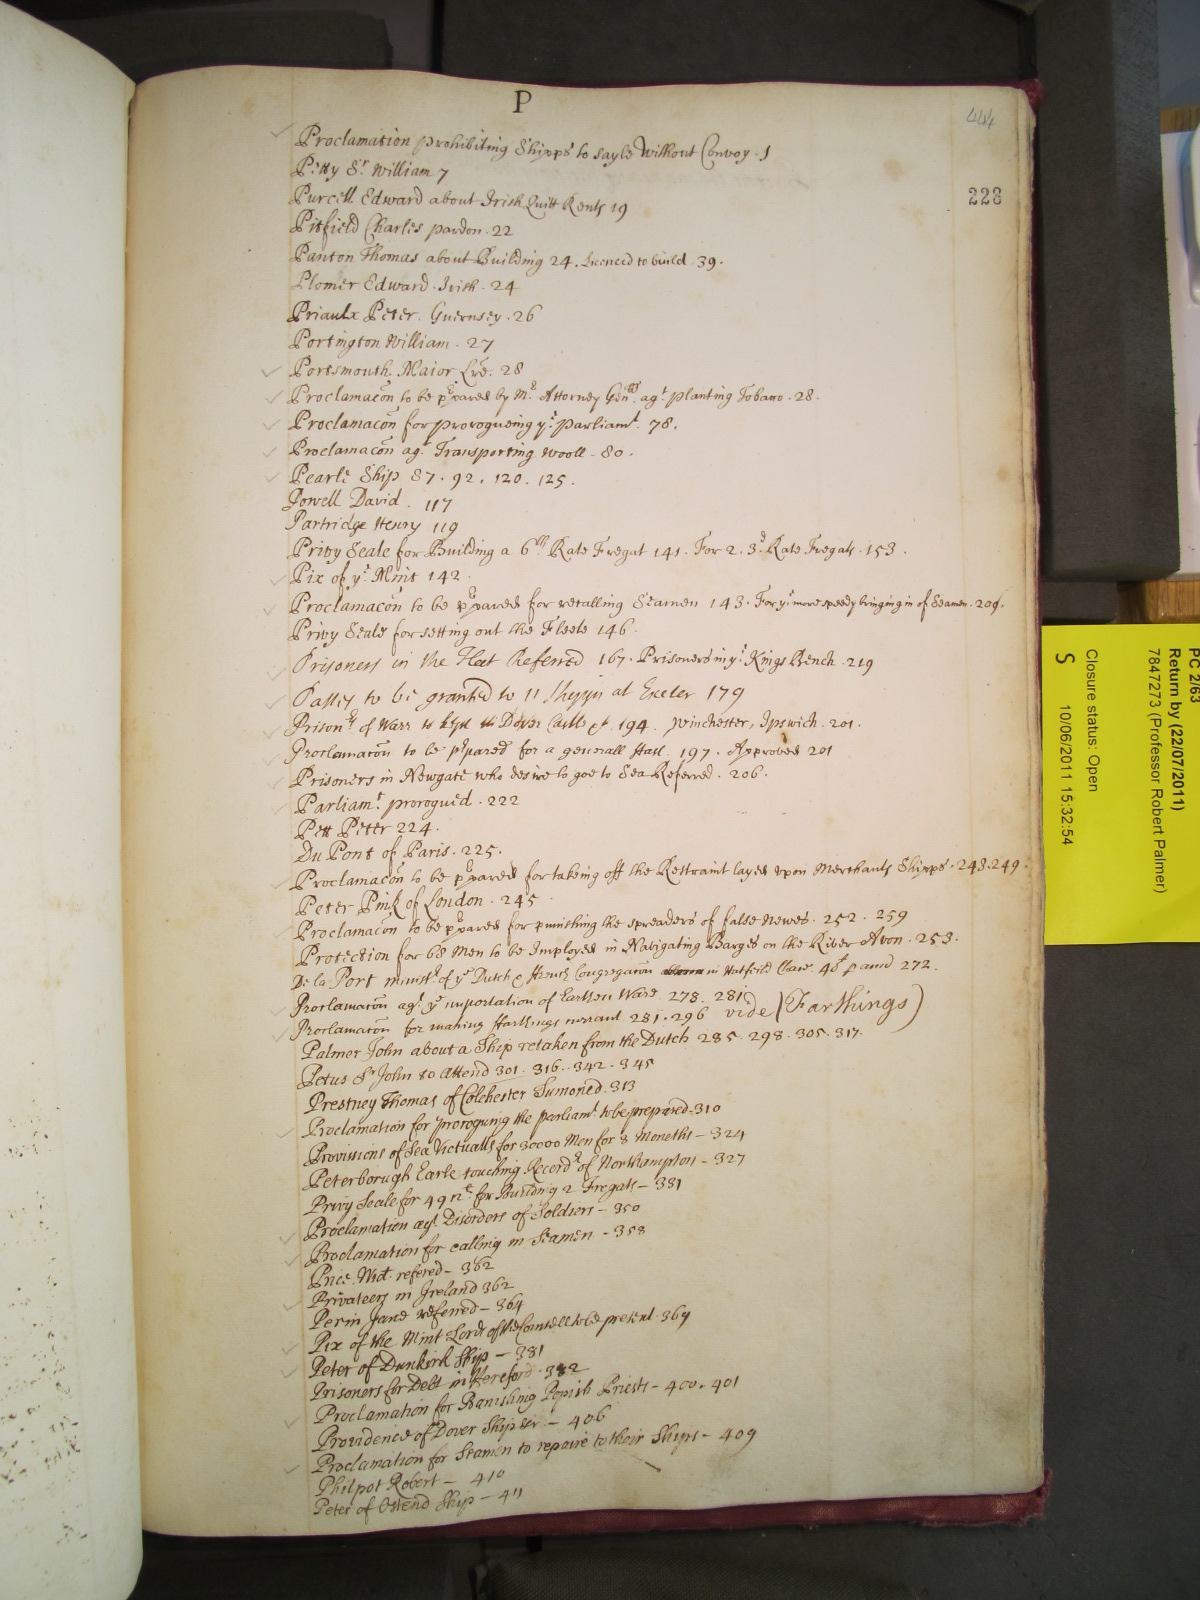 P
444
228
Proclamation prohibiting Shipps to sayle without Convoy . 1
Petty Sr. William 7
Purcell Edward about Irish Quitt Rents 19
Pitfield Charles pardon . 22
Panton Thomas about Building 24 . Licenced to build . 39 .
Plomer Edward . Irish . 24
Priaulx Peter . Guernsey . 26
Portington William . 27
Portsmouth Maior Lre . 28
Proclamacon to be prpared by Mr. Attorney Genll. agt. planting Tobacco . 28 .
Proclamacon for prorogueing ye. parliamt. 78 .
Proclamacon agt. Transporting wooll - 80 .
Pearle Ship 87 . 92 . 120 . 125 .
Powell David . 117
Partridge Henry 119
Privy Seale for Building a 6th. Rate Fregat 141 . For 2 . 3d. Rate Fregats . 153 .
Pix of ye. Mint 142 .
Proclamacon to be prpared for recalling Seamen 143 . For ye. more speedy bringing in of Seamen . 209 .
Privy Seale for setting out the Fleete 146 .
Prisoners in the Fleet Referred 167 . Prisoners in ye. Kings Bench . 219
Passes to be granted to 11 Shipps at Exeter 179
Prisonrs. of Warr to kept at Dover Castle &c 194 . Winchester, Ipswich . 201 .
Proclamacon to be prpared for a generall fast . 197 . Approved 201
Prisoners in Newgate who desire to goe to Sea Referred . 206 .
Parliamt. prorogued . 222
Pett Peter 224 .
Du Pont of Paris . 225 .
Proclamacon to be prpared for taking off the Restraint layed upon Merchants Shipps . 243 . 249 .
Peter Pink of London . 245
Proclamacon to be prpared for punishing the spreaders of false newes . 252 . 259
Protection for 68 Men to be Imployed in Navigating Barges on the River Avon . 253 .
De la Port ministr. of ye Dutch & french Congregacon in Hatfeild Chace . 272 .
Proclamacon agt. ye importation of Earthen Ware . 278 . 281
Proclamacon for making farthings currant . 281 . 296 vide (Farthings)
Palmer John about a Ship retaken from the Dutch 285 . 298 . 305 . 317 .
Petus Sr John to Attend 301 . 316 . 342 . 345
Prestney Thomas of Colchester Sumoned . 313
Proclamation for proroguing the parliamt to be prepared - 310
Provisions of Sea Victualls for 30000 Men for 8 Moneths - 324
Peterborough Earle touching Recordr of Northampton - 327
Privy Seale for for Building 2 Fregats - 331
Proclamation agt. Disorders of Soldiers - 350
Proclamation for calling in Seamen - 358
Price refered - 362
Privateers in Ireland 362
Perin Jane referred - 364
Pix of the Mint Lords of the Councell to be present . 369
Peter of Dunkirk Ship - 381
Prisoners for Debt in Hereford . 382
Proclamation for Banishing Popish Priests - 400 . 401
Providence of Dover Ship &c - 406
Proclamation for Seamen to repaire to their Shipps - 409
Philpot Robert - 410
Peter of Ostend Ship - 411
PC 2/63
Return by (22/07/2011)
7847273 (Professor Robert Palmer)
Closure status: Open
S 10/06/2011 15:32:54